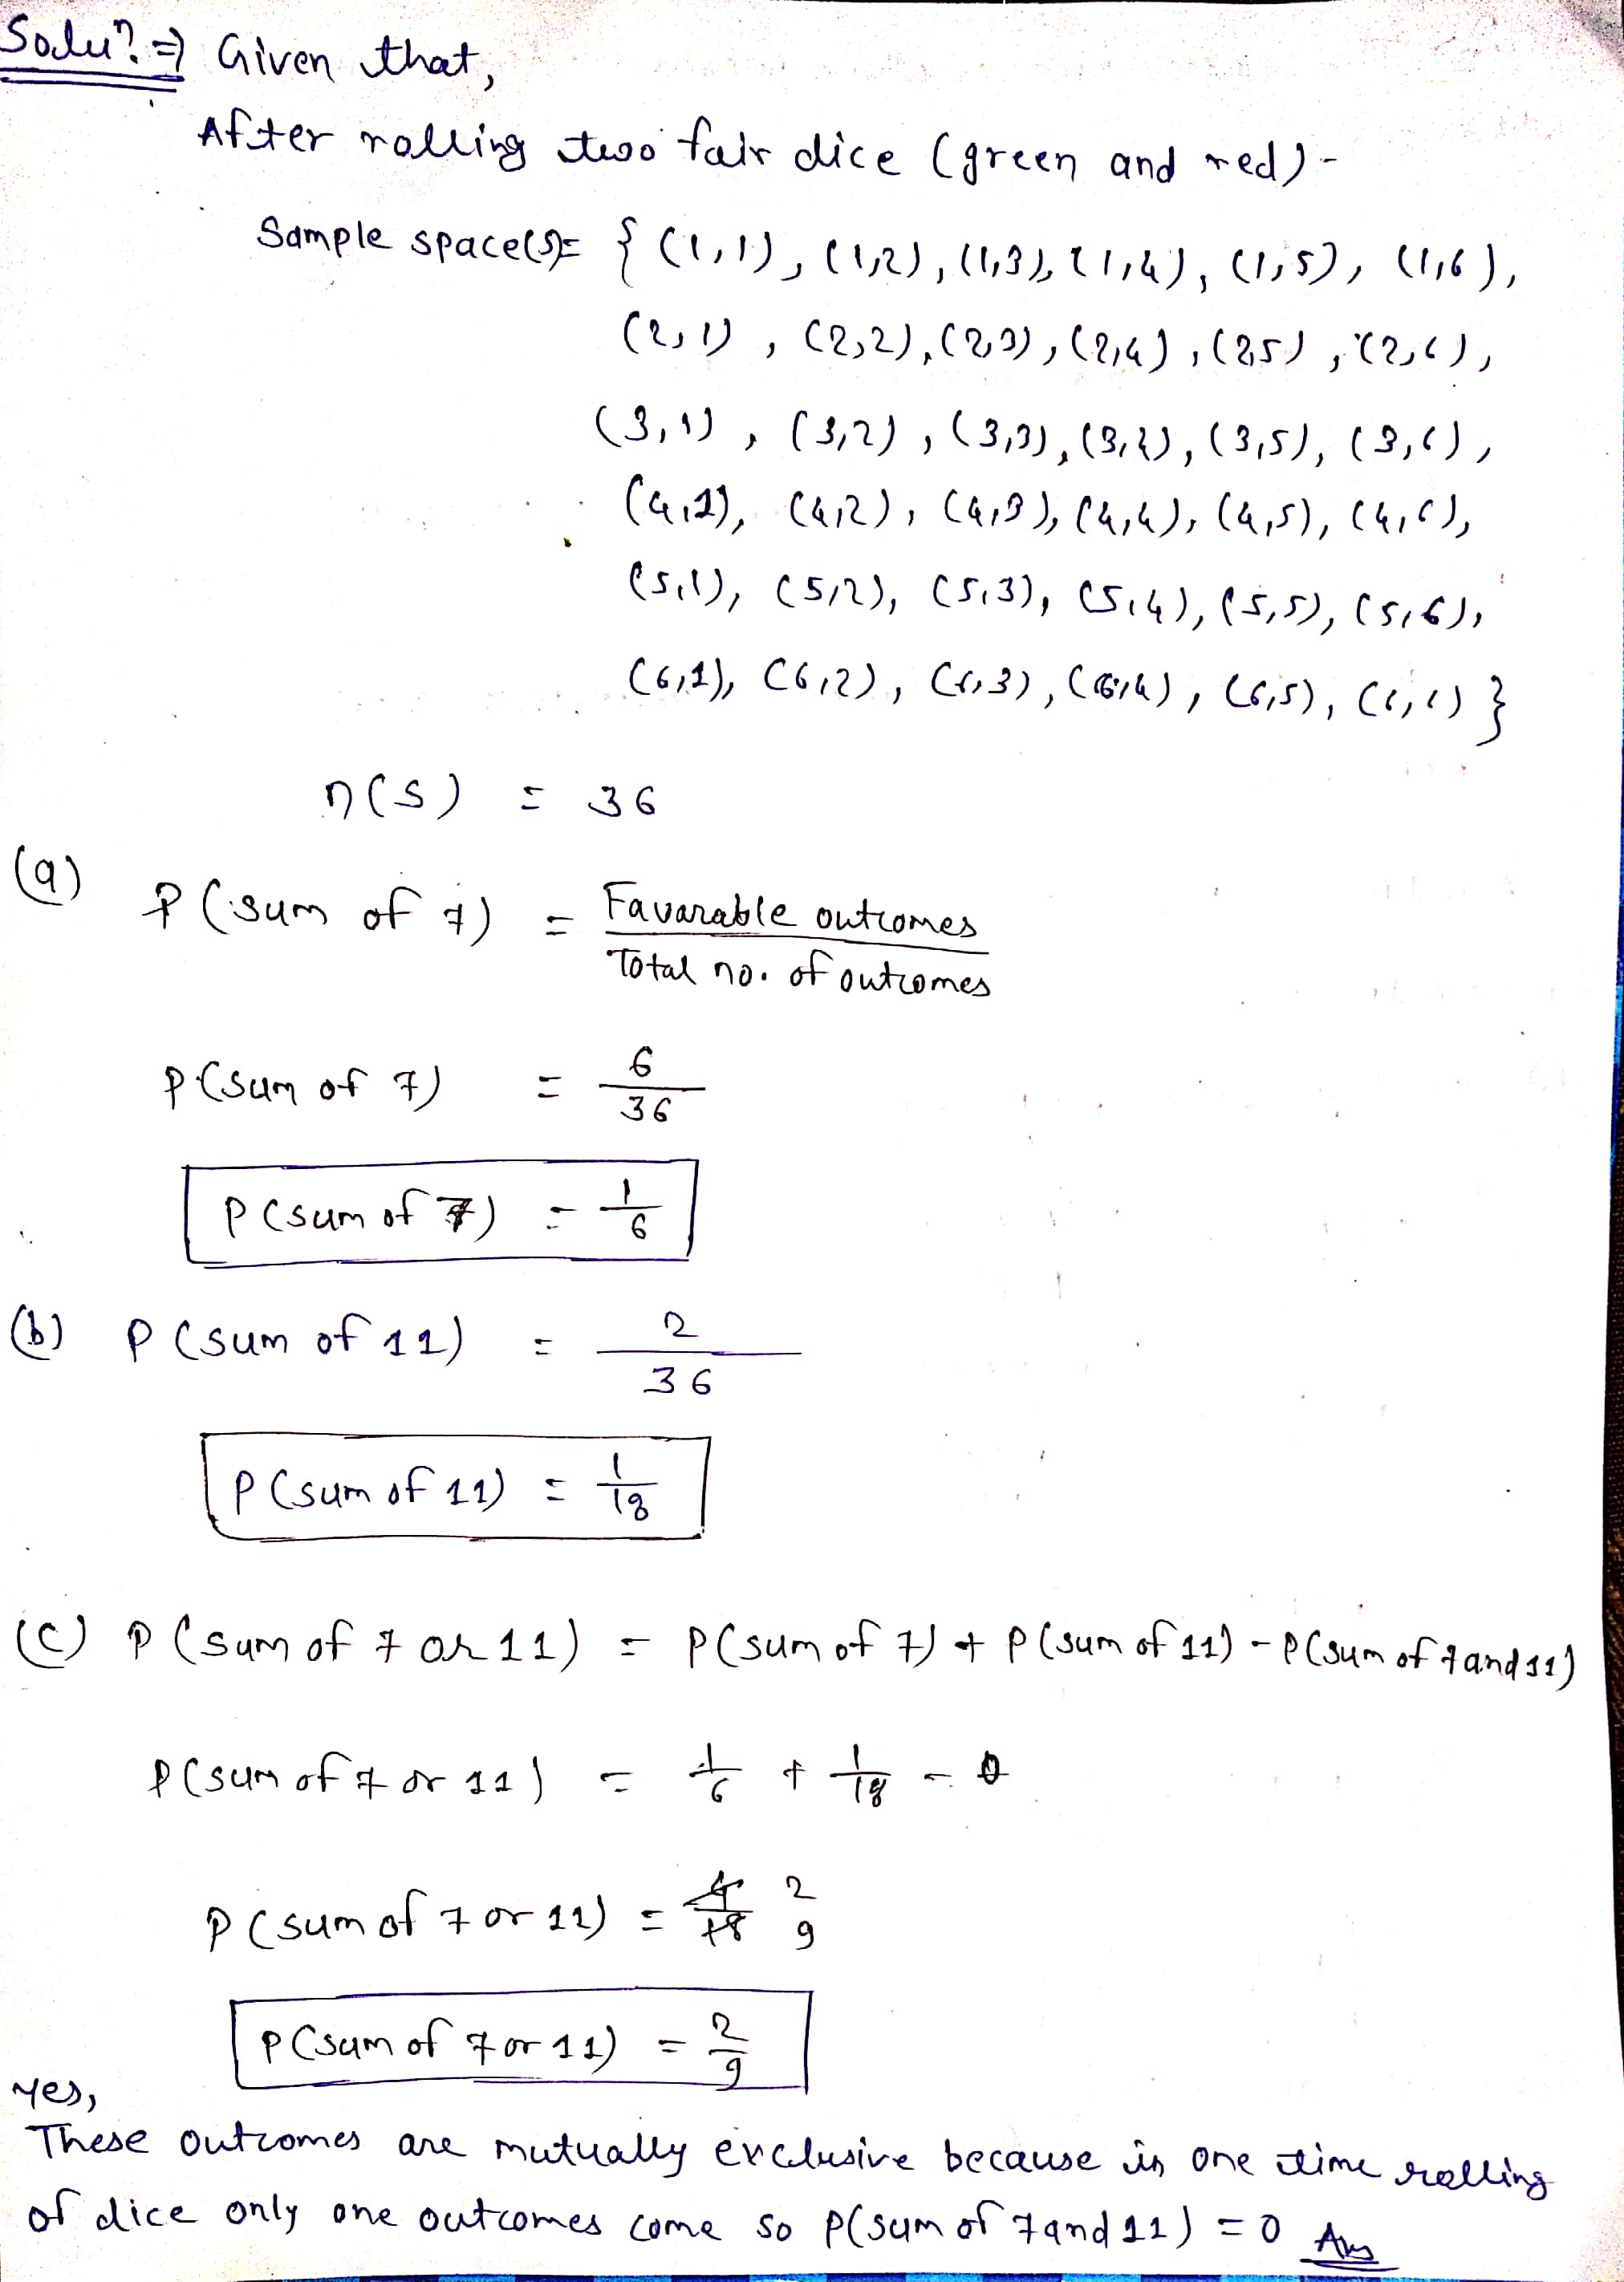 Solun. ⇒ Given that,
After rolling two fair dice (green and red) -
Sample space(s)= { (1,1), (1,2), (1,3), (1,4), (1,5), (1,6),
(2,1), (2,2), (2,3), (2,4), (2,5), (2,6),
(3,1), (3,2), (3,3), (3,4), (3,5), (3,6),
(4,1), (4,2), (4,3), (4,4), (4,5), (4,6),
(5,1), (5,2), (5,3), (5,4), (5,5), (5,6),
(6,1), (6,2), (6,3), (6,4), (6,5), (6,6) }
n(S) = 36
(a) P(sum of 7) = Favarable outcomes / Total no. of outcomes
P(sum of 7) = 6/36
P(sum of 7) = 1/6
(b) P(sum of 11) = 2/36
P(sum of 11) = 1/18
(c) P(sum of 7 or 11) = P(sum of 7) + P(sum of 11) - P(sum of 7 and 11)
P(sum of 7 or 11) = 1/6 + 1/18 - 0
P(sum of 7 or 11) = 4/18 2/9
P(sum of 7 or 11) = 2/9
yes,
These outcomes are mutually exclusive because in one time rolling
of dice only one outcomes come so P(sum of 7 and 11) = 0 Ans